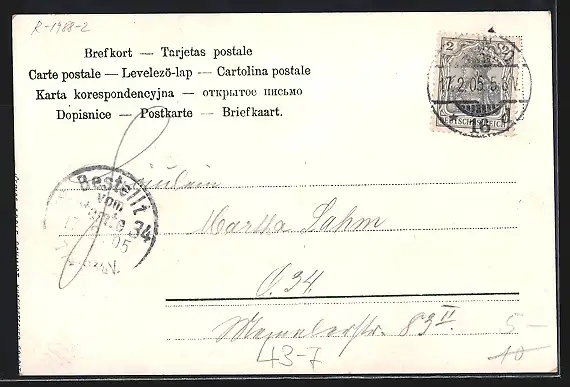 R-1988-2
Brefkort — Tarjetas postale
Carte postale — Levelező-lap — Cartolina postale
Karta korespondencyjna — открытое письмо
Dopisnice — Postkarte — Briefkaart.
2
17.2.05.5-6
16
DEUTSCHES REICH
Bestellt
vom
Postamte 34
17
05
Fräulein
Martha Lahm
O. 34.
Memelerstr. 83 II.
5-
10
43-7